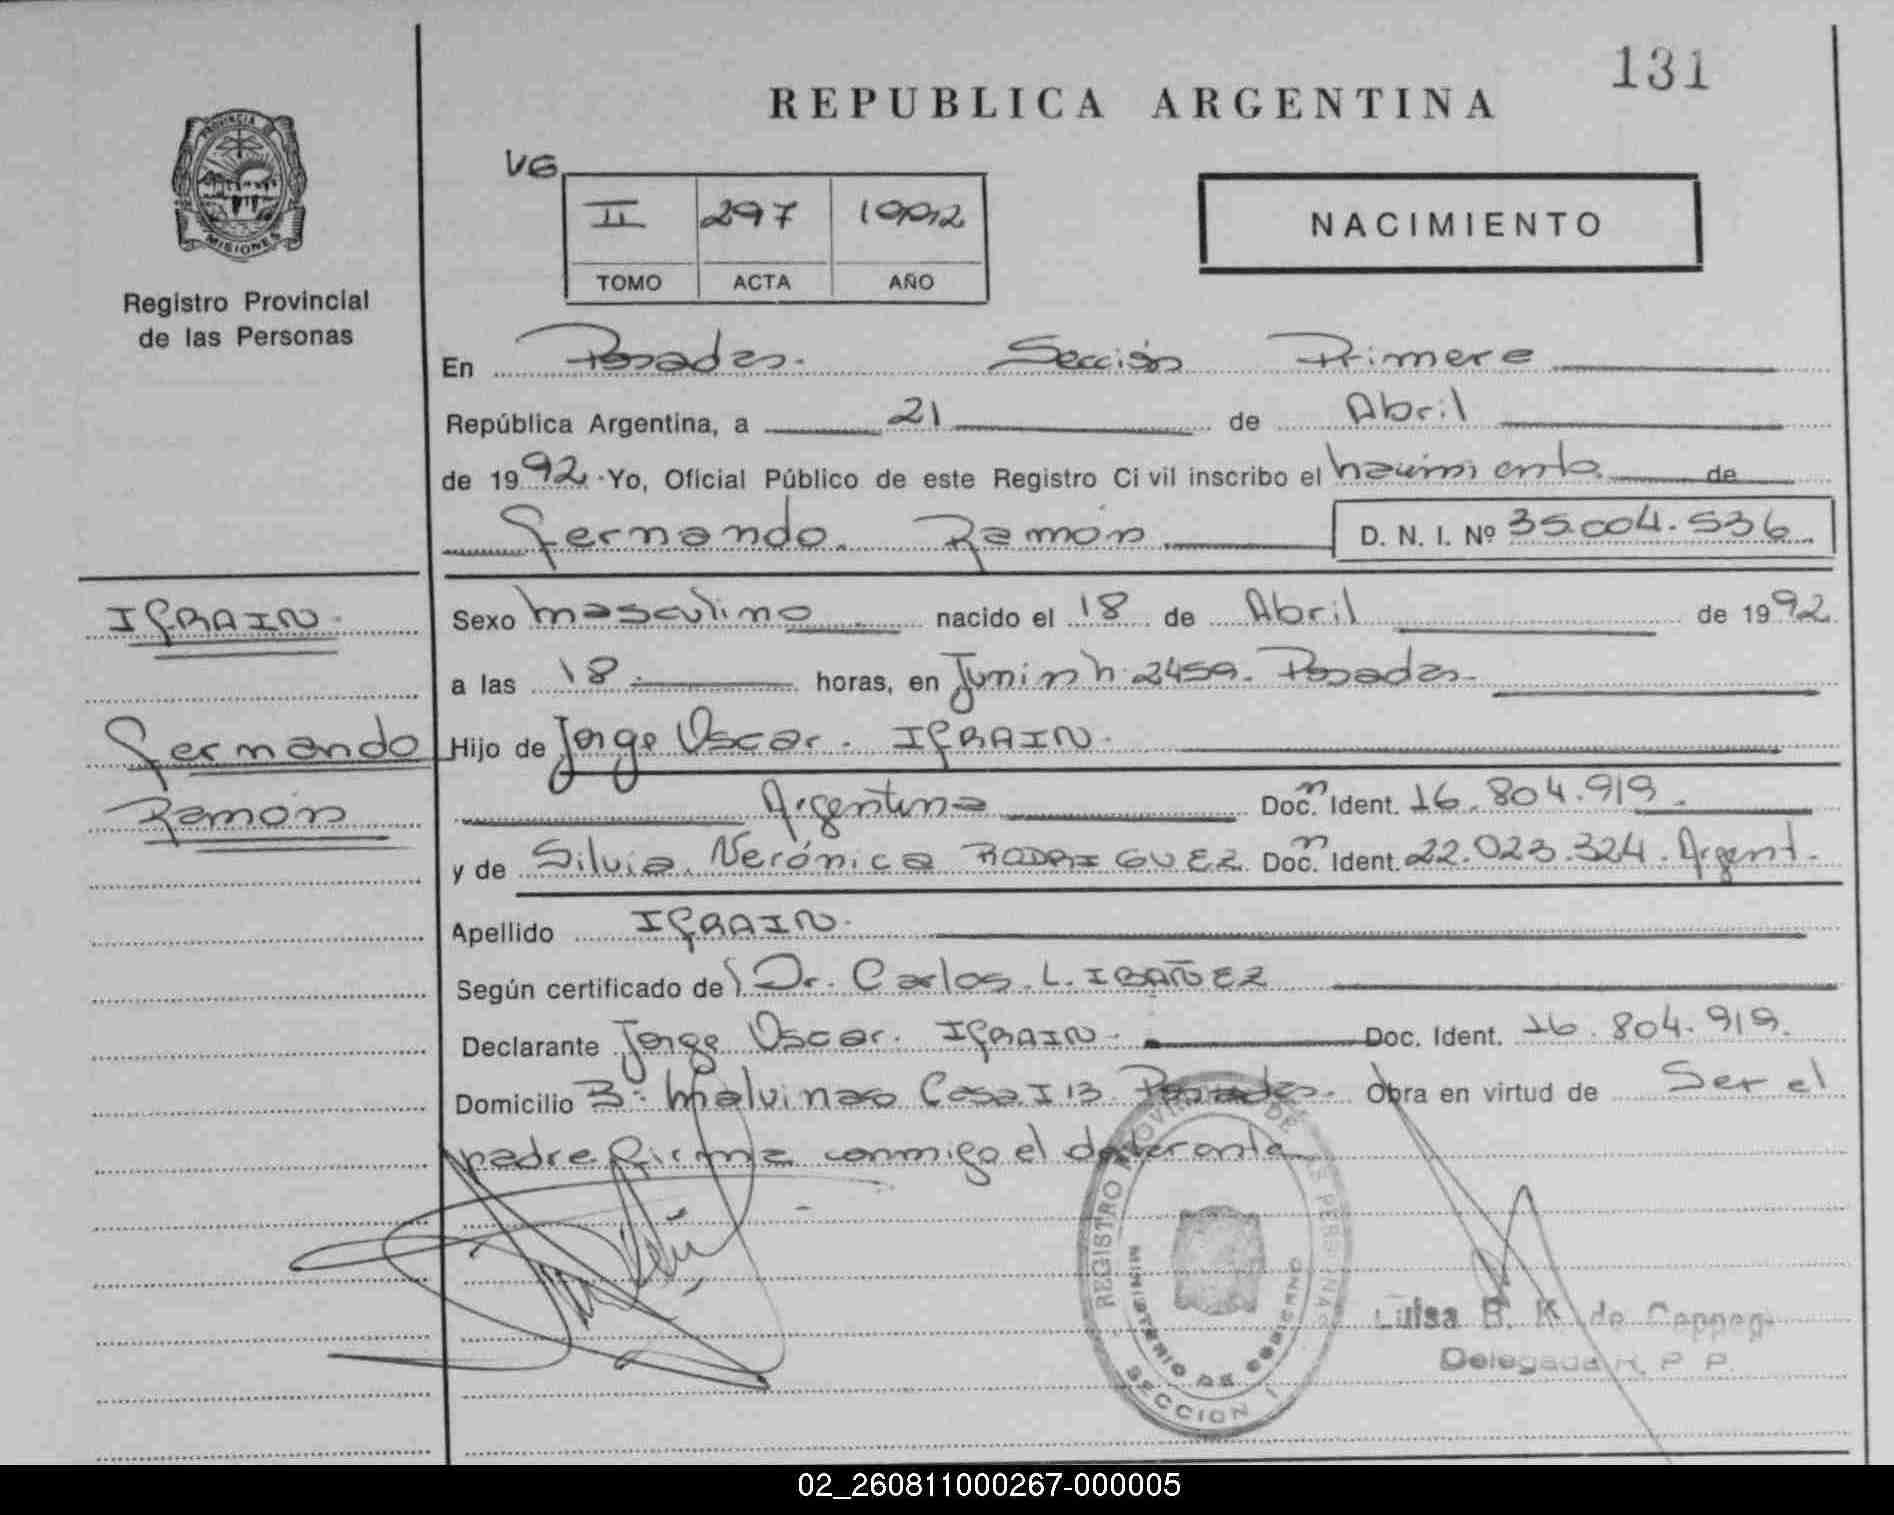 131
REPUBLICA ARGENTINA
VG
II 297 1992
TOMO ACTA AÑO
NACIMIENTO
PROVINCIA DE
MISIONES
Registro Provincial
de las Personas
En Posadas. Sección Primera
República Argentina, a 21 de Abril
de 1992. Yo, Oficial Público de este Registro Civil inscribo el nacimiento de
Fernando Ramón D. N. I. Nº 35.004.536.
IFRAIN. Sexo masculino nacido el 18 de Abril de 1992.
a las 18. horas, en Junin n. 2459. Posadas.
Fernando Hijo de Jorge Oscar. IFRAIN.
Ramón Argentina Doc. Ident. 16.804.919.
y de Silvia Verónica RODRIGUEZ Doc. Ident. 22.023.324. Argent.
Apellido IFRAIN.
Según certificado del Dr. Carlos L. IBAÑEZ
Declarante Jorge Oscar. IFRAIN. Doc. Ident. 16.804.919.
Domicilio B: Malvinas Casa 113 Posadas. Obra en virtud de Ser el
padre firma conmigo el declarante
REGISTRO PROVINCIAL DE LAS PERSONAS
MINISTERIO DE GOBIERNO
SECCION I
Luisa B. K. de
Delegada R. P. P.
02_260811000267-000005